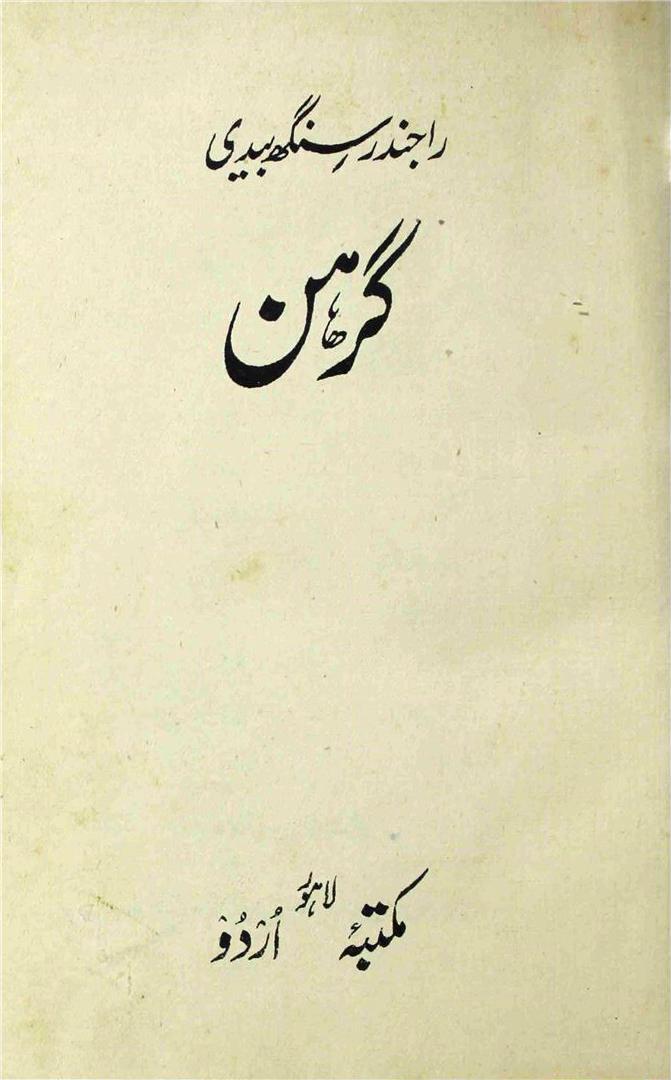 راجندر سنگھ بیدی
گرھن
مکتبۂ اُردُو لاہور